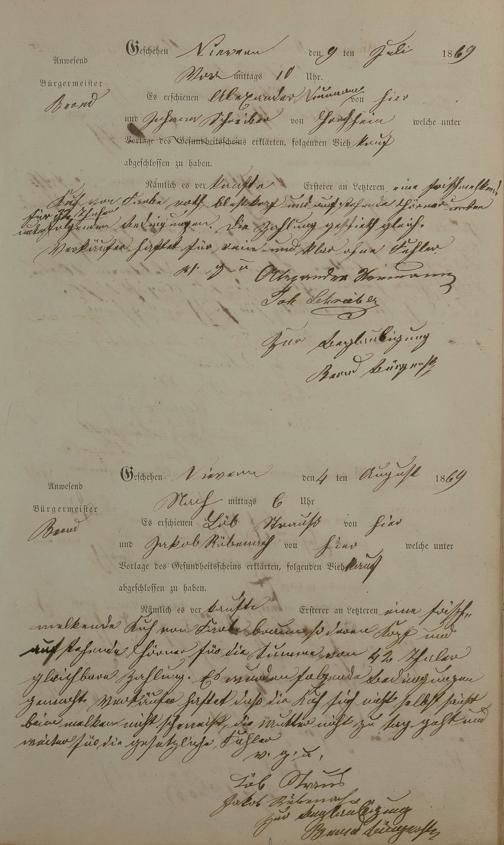 Geschehen Nievern den 9 ten Juli 1869
Anwesend
Vor mittags 10 Uhr.
Bürgermeister
Es erschienen Alexander von hier
Brand
und Johann Schreiber von welche unter
Vorlage des Gesundheitscheins erklärten, folgenden Vieh kauf
abgeschlossen zu haben.
Nämlich es ver kaufte Ersterer an Letzteren eine
Kuh von Farbe roth und aufstehende Hörner unter
für
Bedingungen. Die Zahlung gleich.
Verkäufer haftet für rein und klar ohne Fehler
v. g. u.
Alexander Hermann
Joh Schreiber
Zur Beglaubigung
Brand Bürgerstr
Geschehen Nievern den 4 ten August 1869
Anwesend
Nach mittags 6 Uhr
Bürgermeister
Es erschienen Löb Strauß von hier
Brand
und Jakob von hier welche unter
Vorlage des Gesundheitsscheins erklärten, folgenden Vieh kauf
abgeschlossen zu haben.
Nämlich es ver kaufte Ersterer an Letzteren eine frisch-
melkende Kuh von Farbe Kopf und
aufstehende Hörner für die Summe von 42 Thaler
gleichbare Zahlung. Es wurden folgende Bedingungen
gemacht. Verkäufer haftet daß die Kuh sich nicht selbst
beim melken nicht die Mutter nicht zu Tag geht und
weiter für die gesetzliche Fehler
v. g. u.
Löb Straus
Jakob
Zur Beglaubigung
Brand Bürgerstr